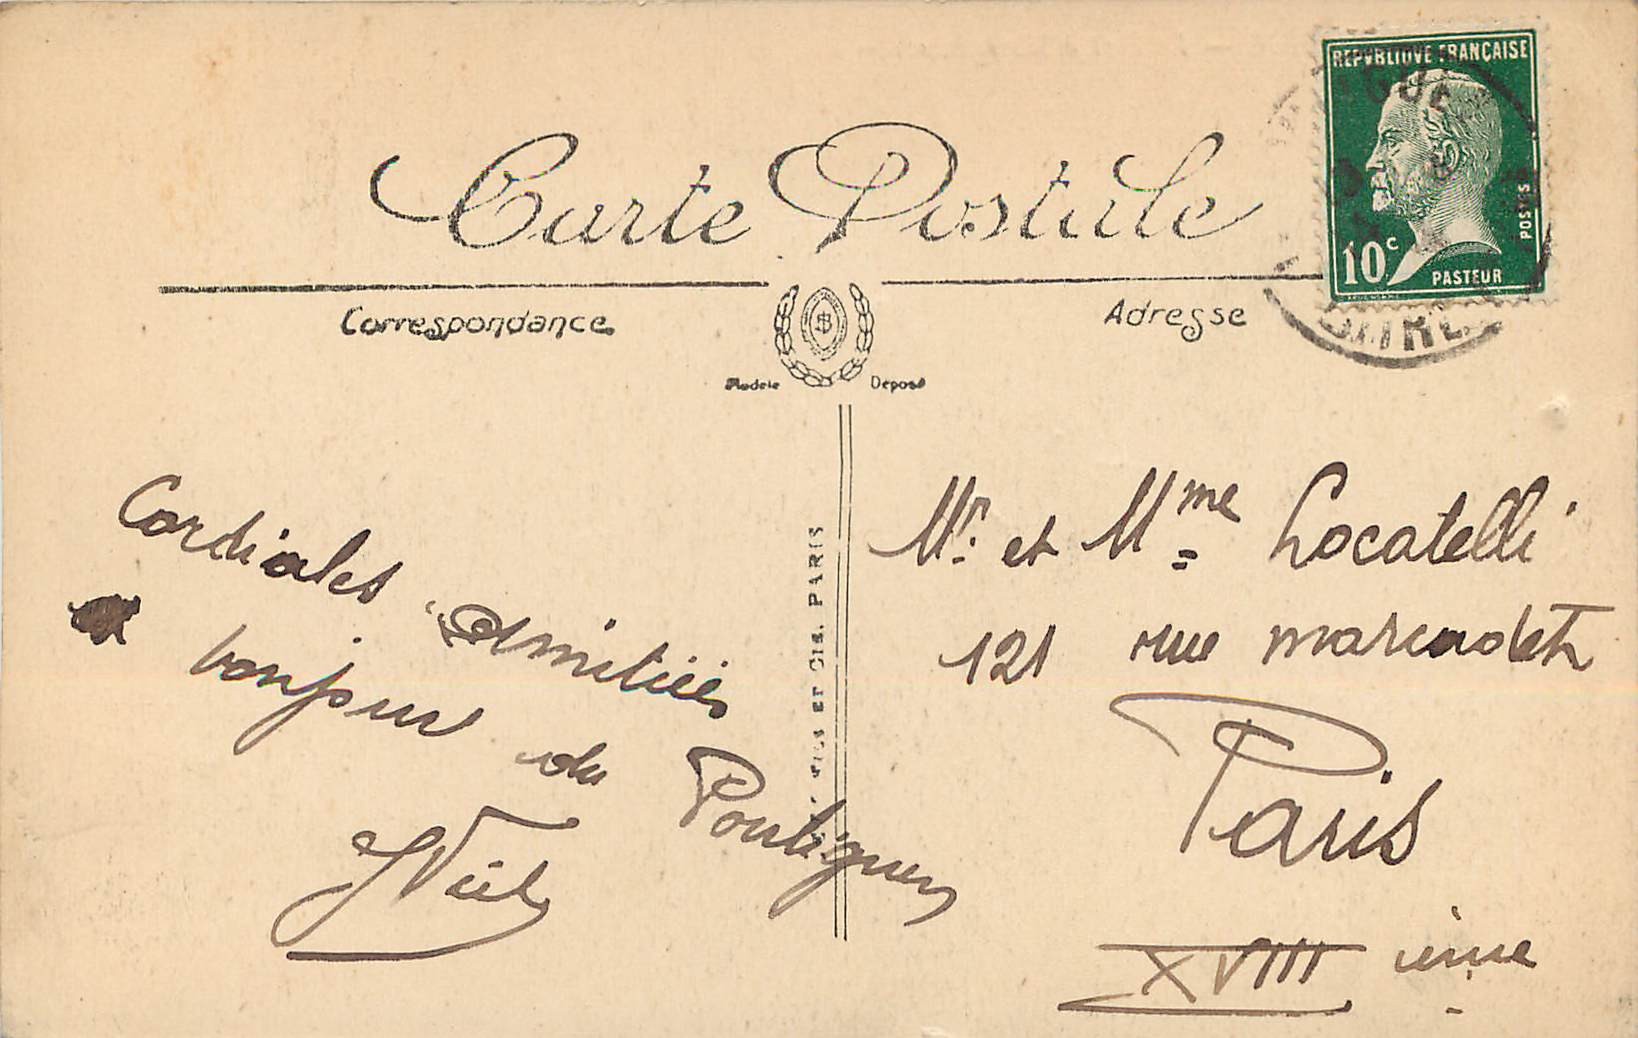 REPVBLIQVE FRANÇAISE
POSTES
10c
PASTEUR
Carte Postale
Correspondance
Adresse
Modèle Déposé
PARIS
Cordiales Amitiés
bonjour de Pontigner
Mr. et Mme Locatelli
121 rue marcadet
Paris
XVIII ième